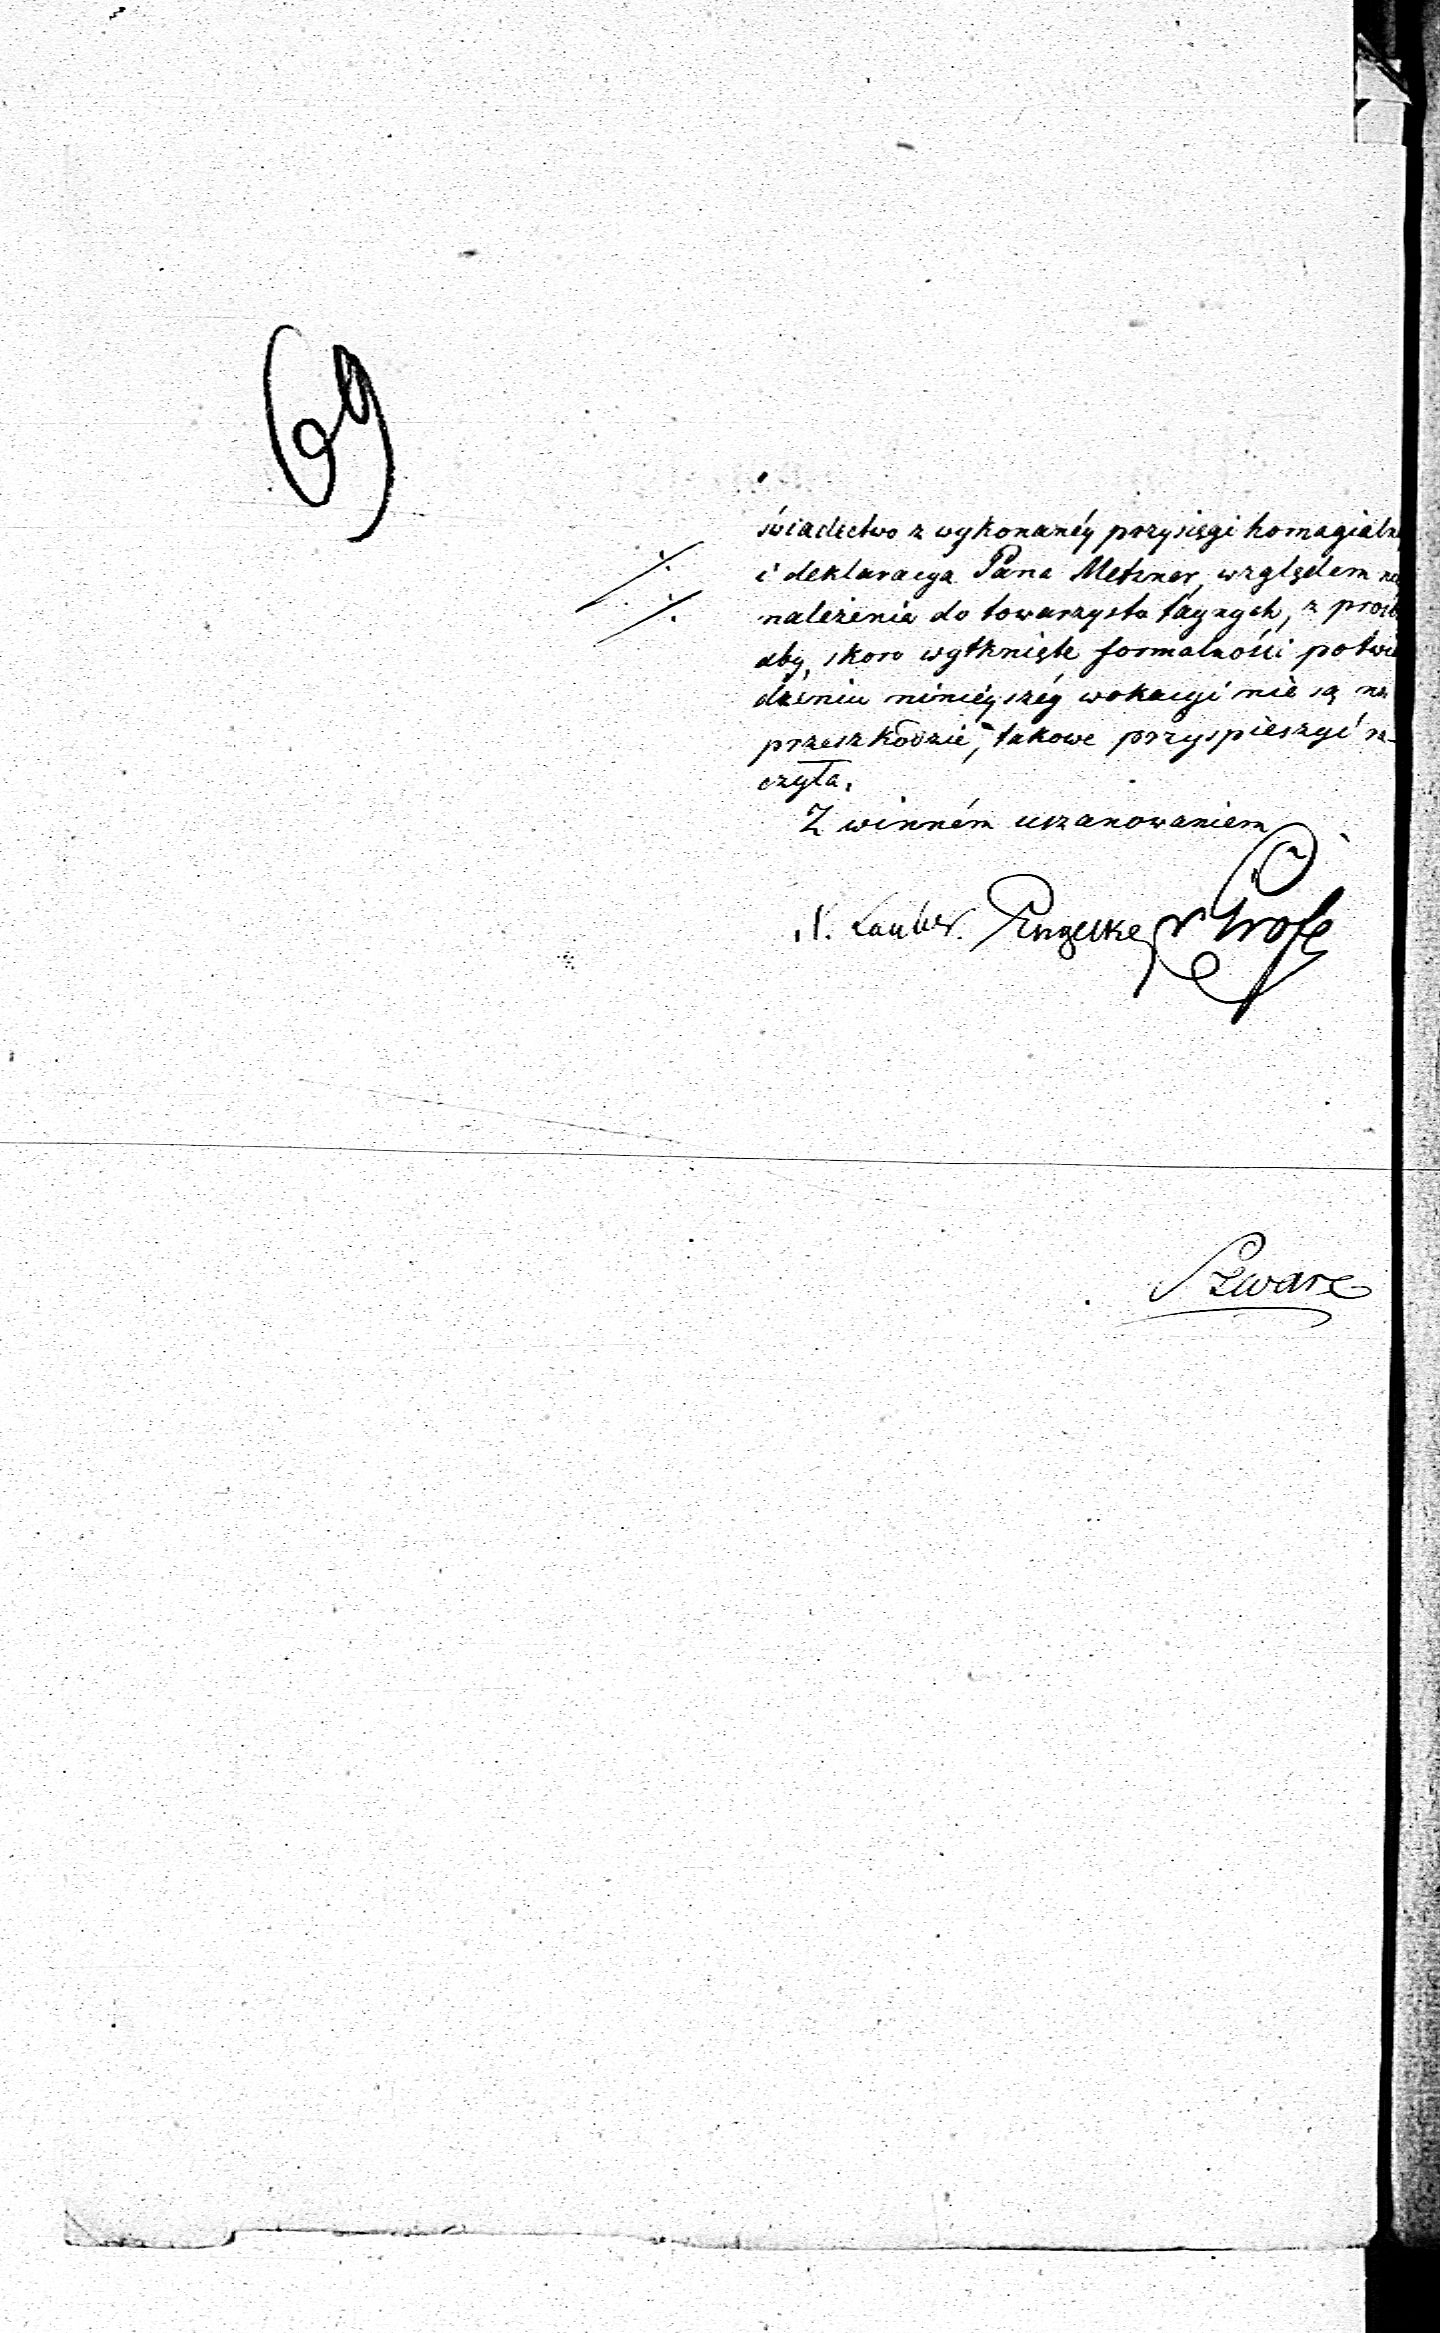 69
świadectwo z wykonanéy przysięgi homagialn
i deklaracya Pana Metzner, względem nie
należenia do towarzystw taynych, z prośb
aby, skoro wytknięte formalności potwie
dzeniu ninieyszéy wokacyi nie są na
przeszkodzie, takowe przyspieszyć ra-
czyła.
Z winném uszanowaniem
Lauber. Engelke
Szwarc